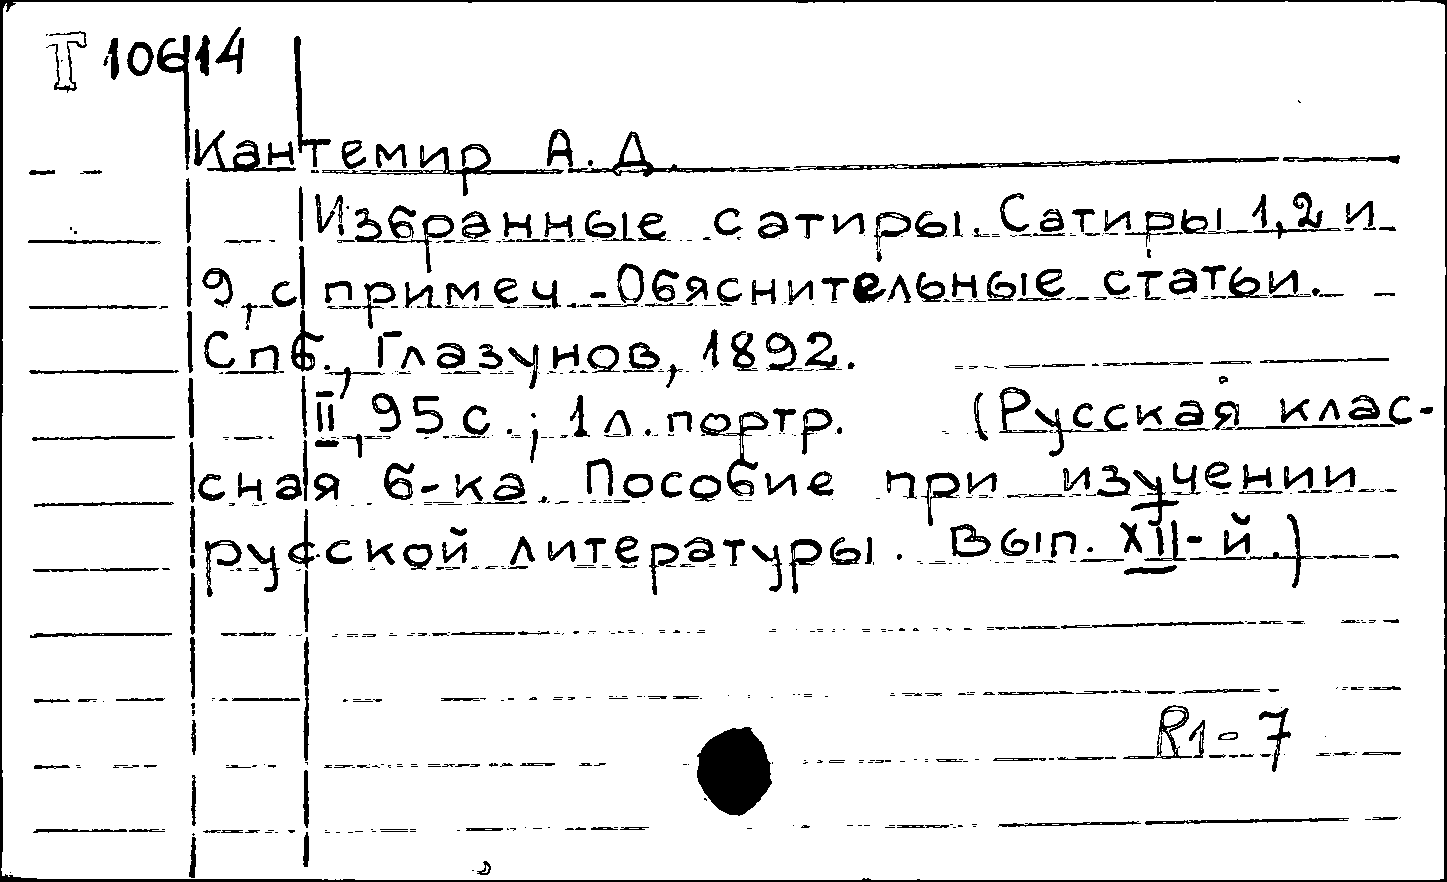 T 10614
Кантемир А. Д.
Избранные сатиры. Сатиры 1,2 и
9, с примеч. - Обяснительные статьи.
Спб., Глазунов, 1892.
II, 95 с.; 1 л. портр. (Русская клас-
сная б-ка. Пособие при изучении
русской литературы. Вып. XII-й.)
R1-7